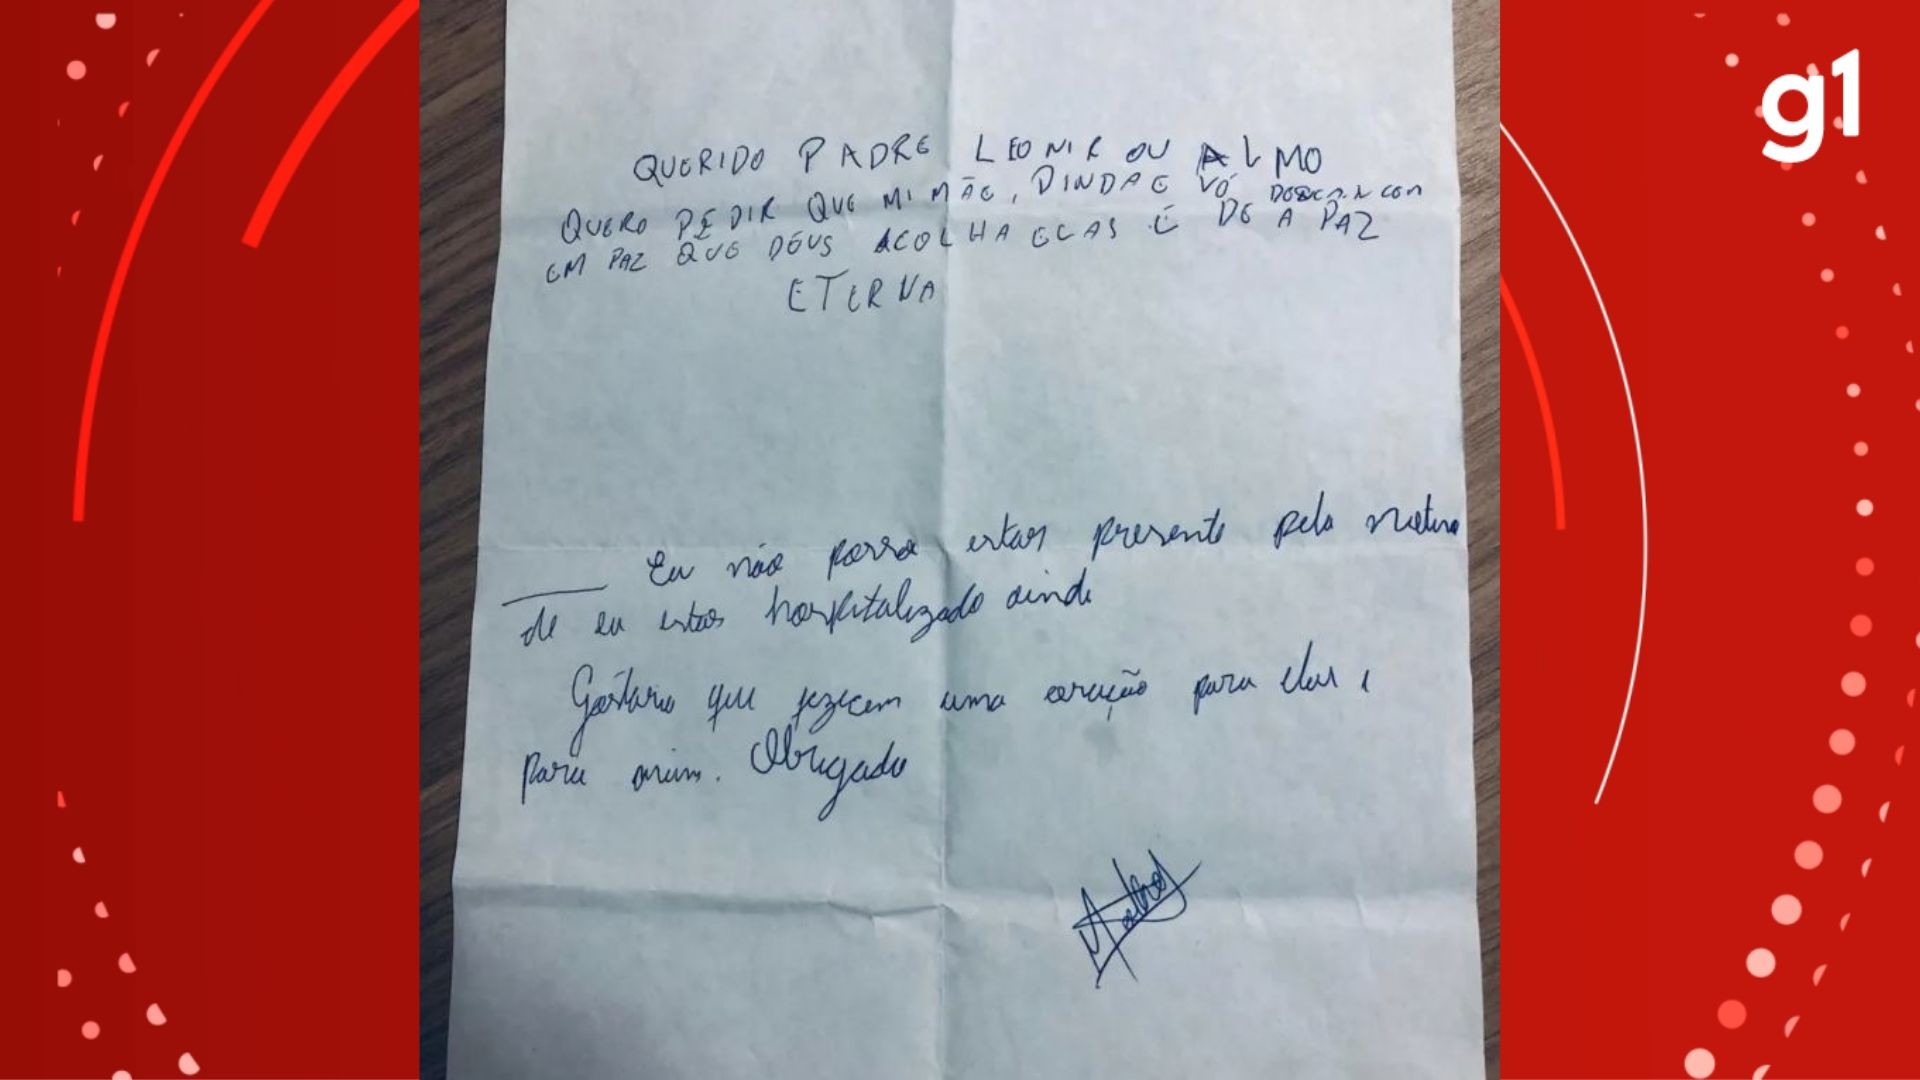 g1
QUERIDO PADRE LEONIR OU ALMO
QUERO PEDIR QUE MI MÃE, DINDA E VÓ
EM PAZ QUE DEUS ACOLHA ELAS E DE A PAZ
ETERNA
Eu não posso estar presente pelo
de eu estar hospitalizado ainda
Gostaria que fizecem uma oração para elas e
para mim. Obrigado